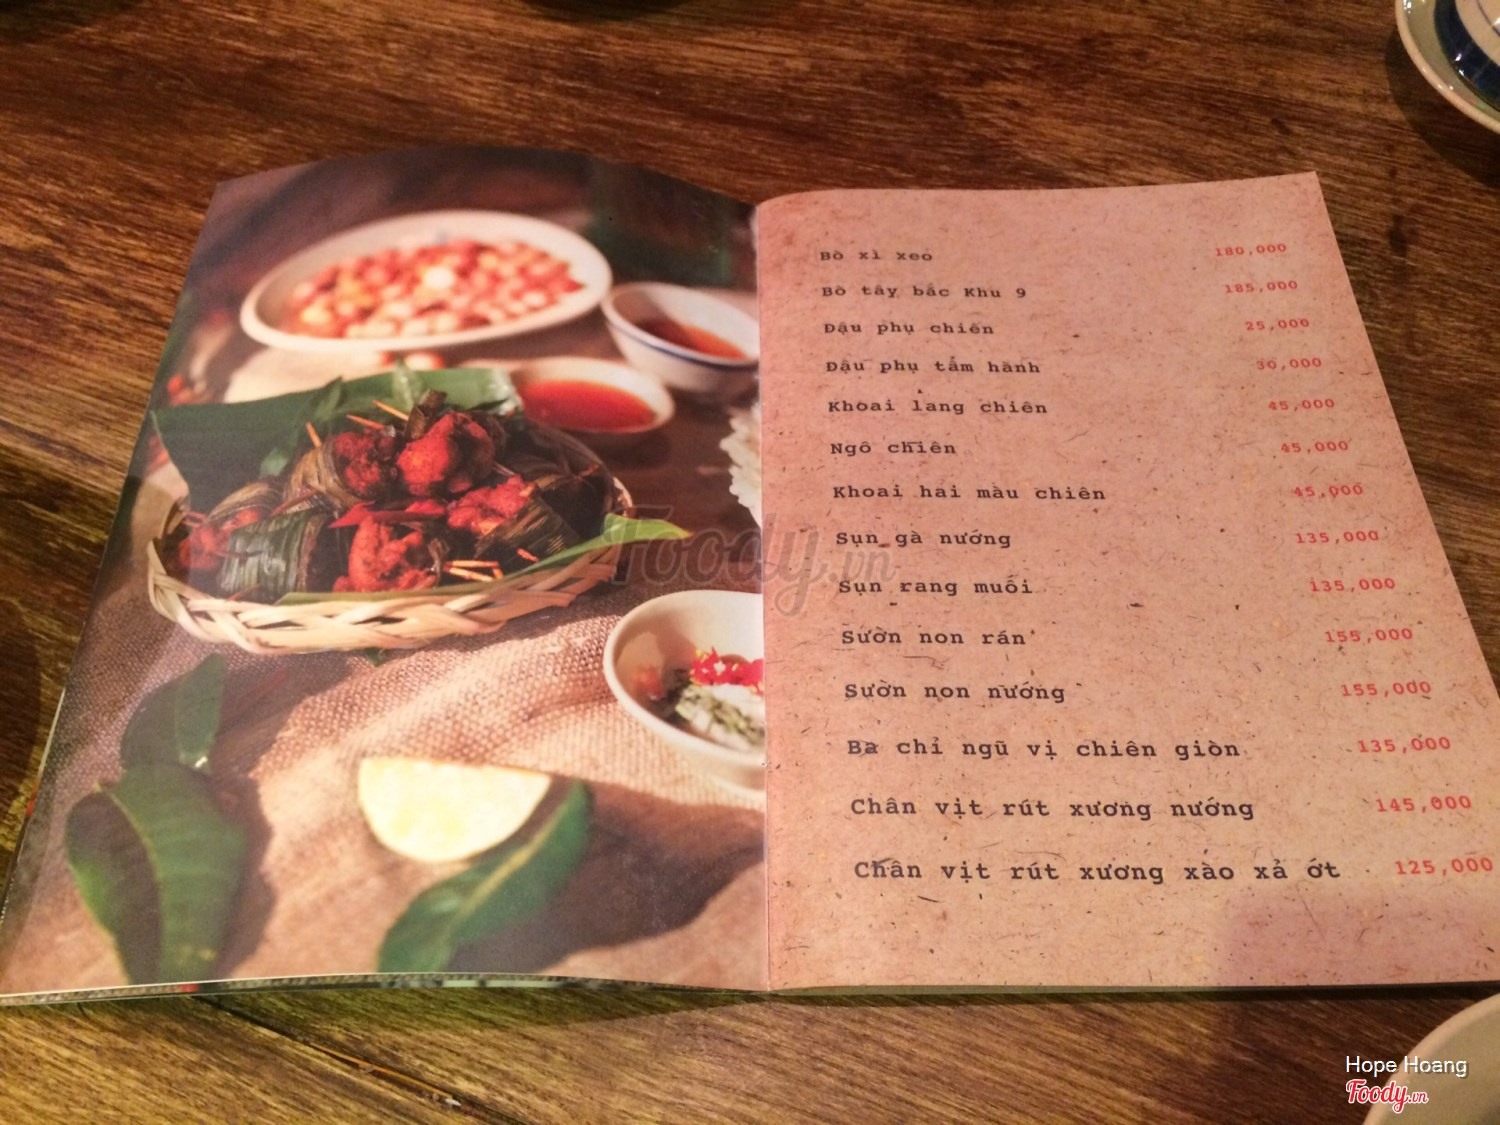 Bò xì xèo 180,000
Bò tây bắc Khu 9 185,000
Đậu phụ chiên 25,000
Đậu phụ tẩm hành 30,000
Khoai lang chiên 45,000
Ngô chiên 45,000
Khoai hai màu chiên 45,000
Sụn gà nướng 135,000
Sụn rang muối 135,000
Sườn non rán 155,000
Sườn non nướng 155,000
Ba chỉ ngũ vị chiên giòn 135,000
Chân vịt rút xương nướng 145,000
Chân vịt rút xương xào xả ớt 125,000
Foody.vn
Hope Hoang
Foody.vn